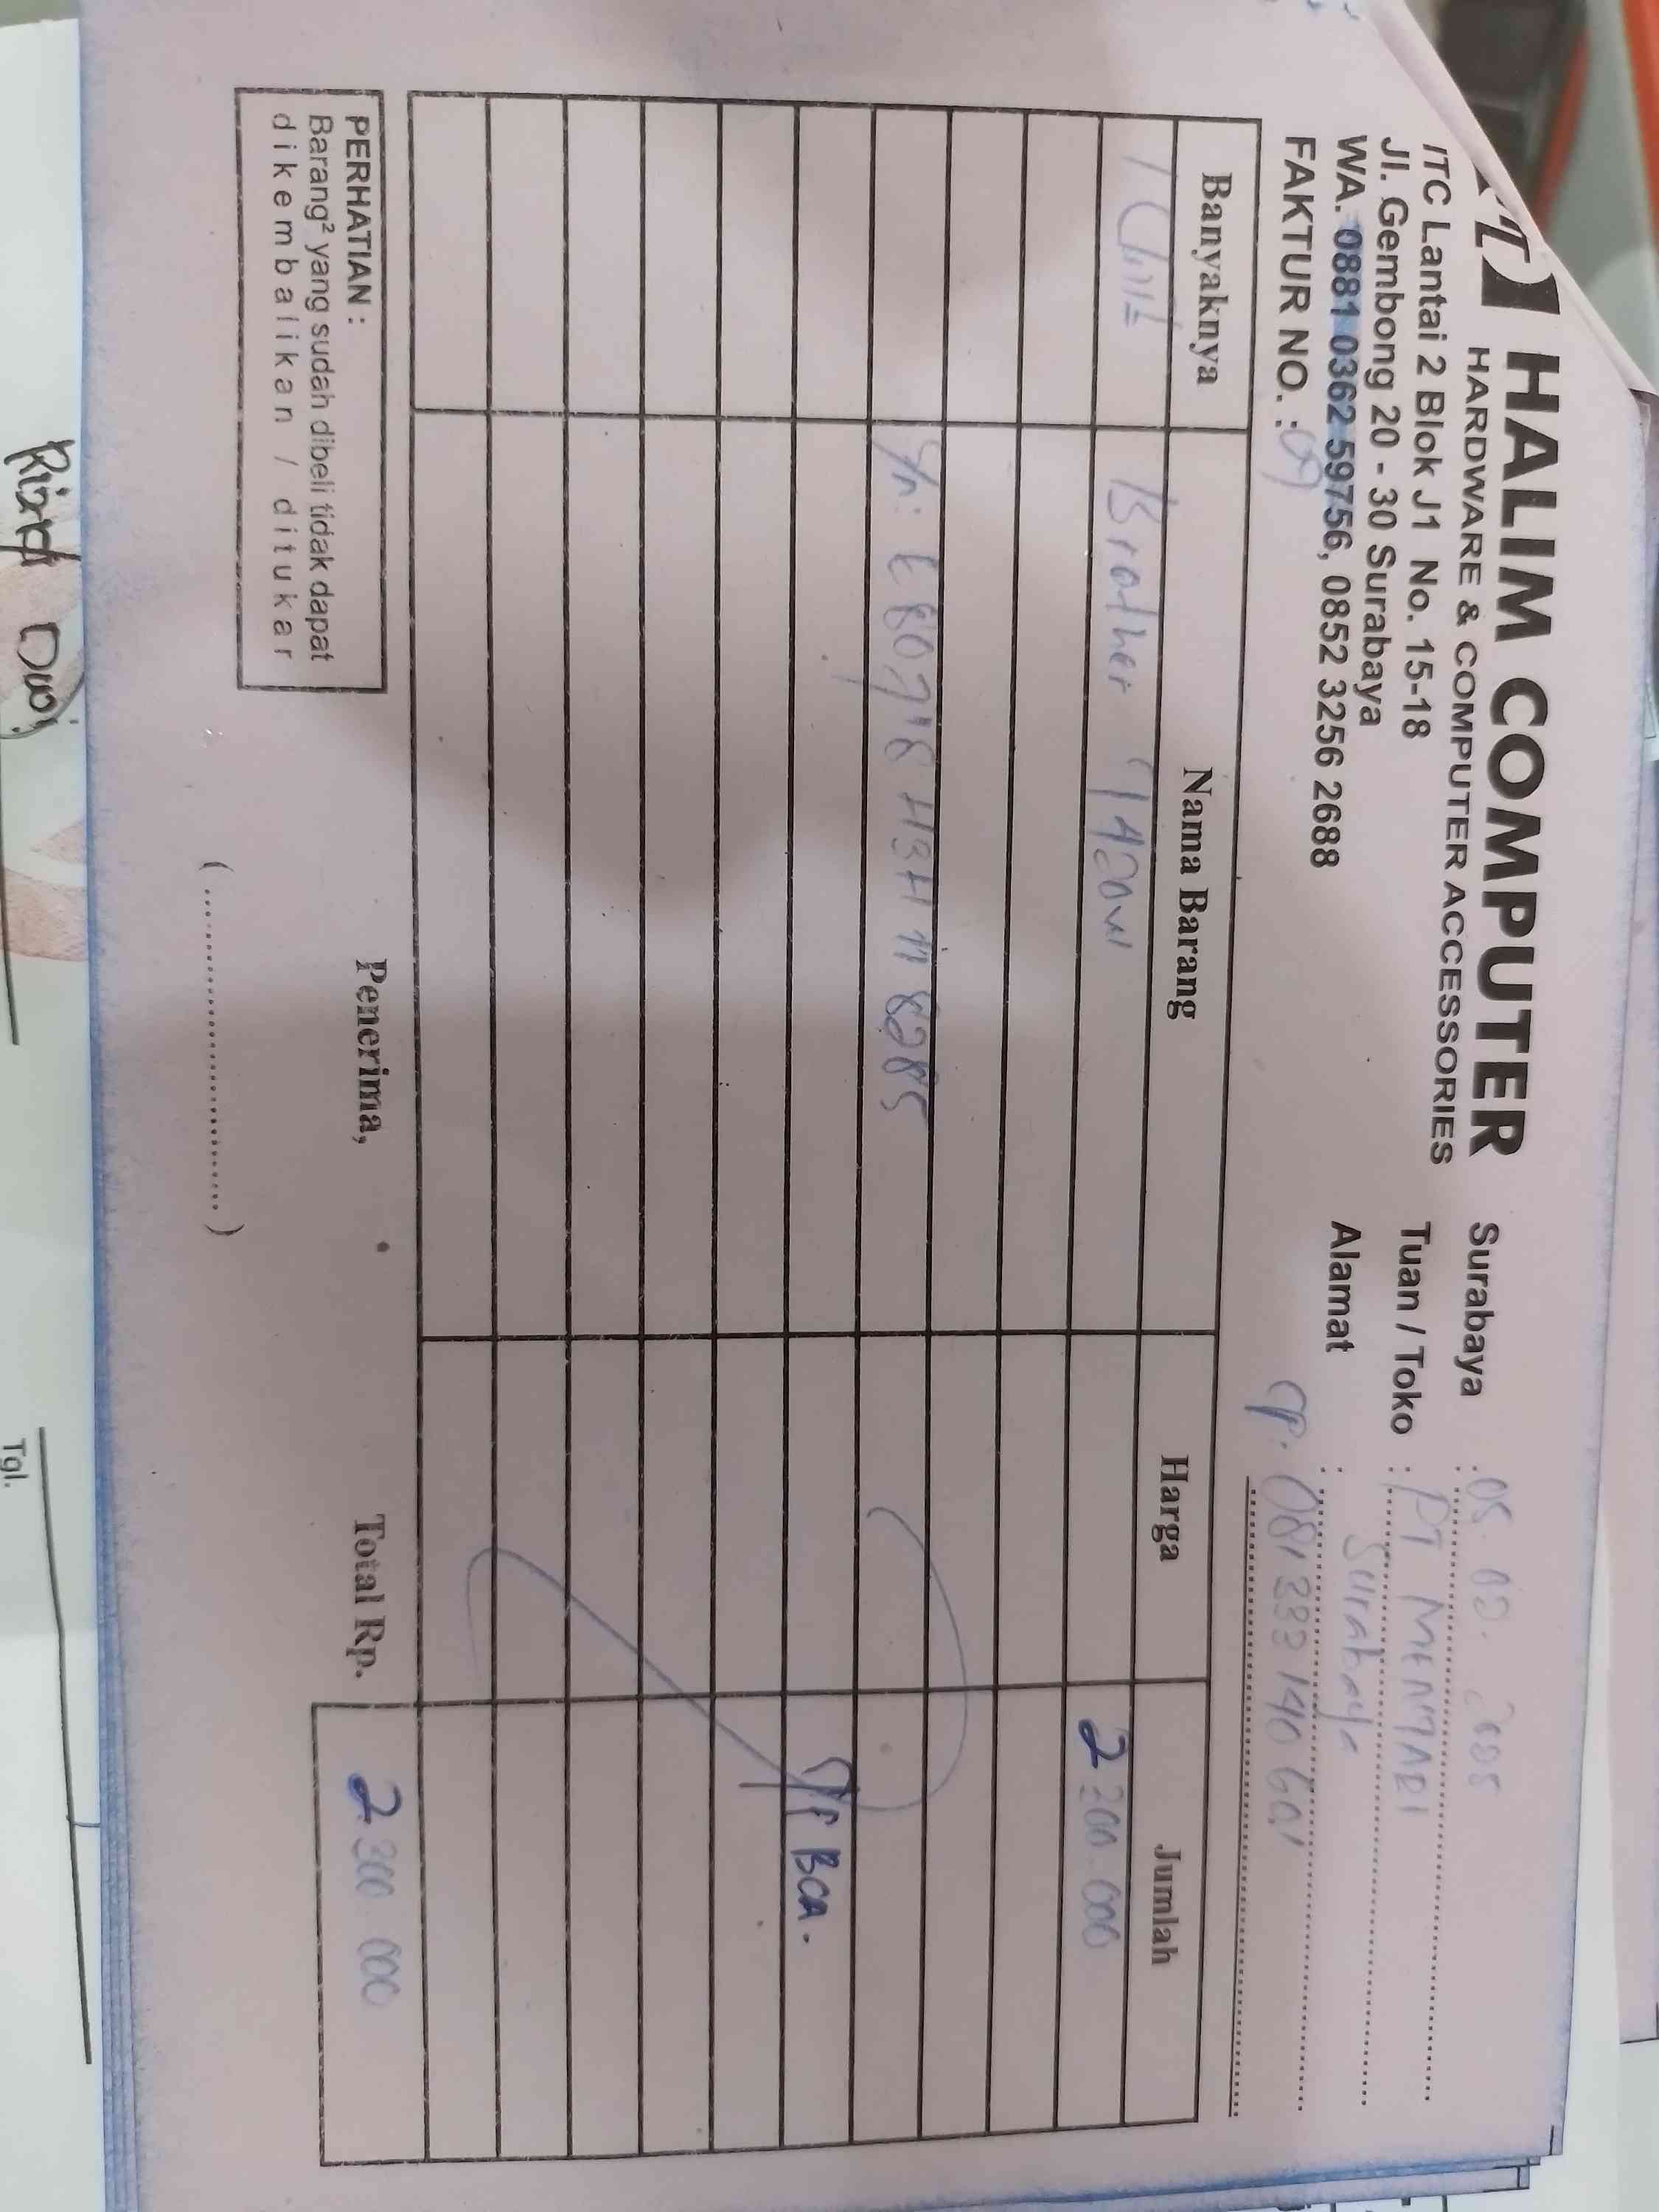 HALIM COMPUTER
HARDWARE & COMPUTER ACCESSORIES
ITC Lantai 2 Blok J1 No. 15-18
Jl. Gembong 20 - 30 Surabaya
WA. 0881 0362 59756, 0852 3256 2688
FAKTUR NO. :
Surabaya :
Tuan / Toko : PT
Alamat : Surabaya
cp. 081 333 140 601
Banyaknya Nama Barang Harga Jumlah
1 Unit Brother 2 300.000
TF BCA.
PERHATIAN :
Barang² yang sudah dibeli tidak dapat
dikembalikan / ditukar
Penerima,
(..............................)
Total Rp. 2 300 000
Dwi
Tgl.